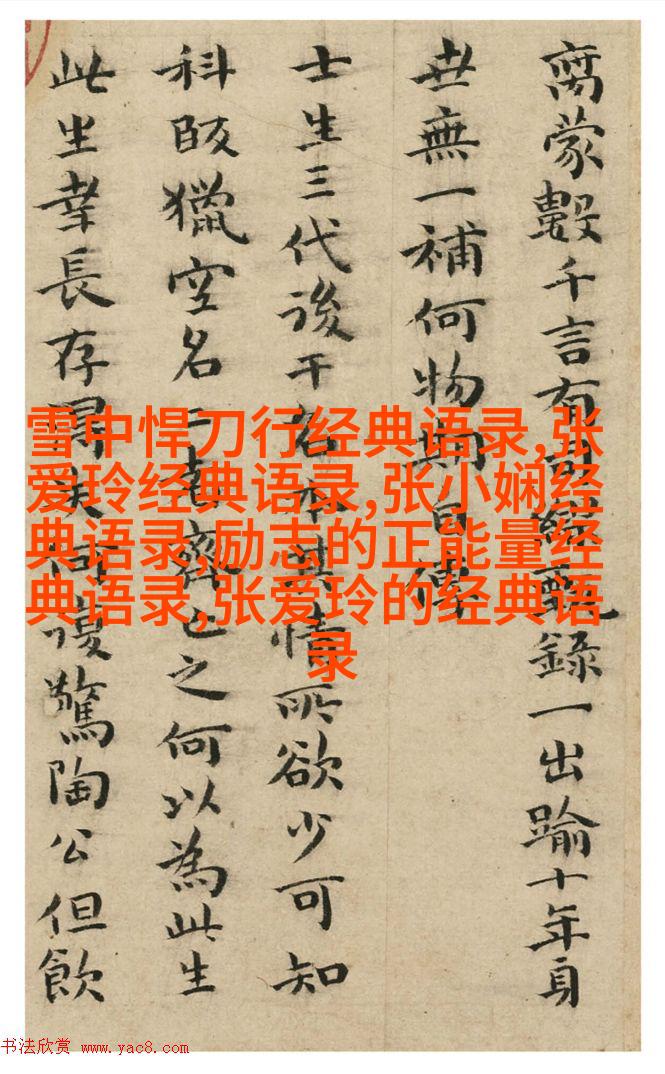 蒙數千言有經録一出踰十年身
世無一補何物自傳
士生三代後干名亦其情所欲少可知
科畋獵空名二齊亡之何以為此生
此生幸長存失何復驚陶公但飲
雪中悍刀行经典语录,张
爱玲经典语录,张小娴经
典语录,励志的正能量经
典语录,张爱玲的经典语
录
书法欣赏 www.yac8.com